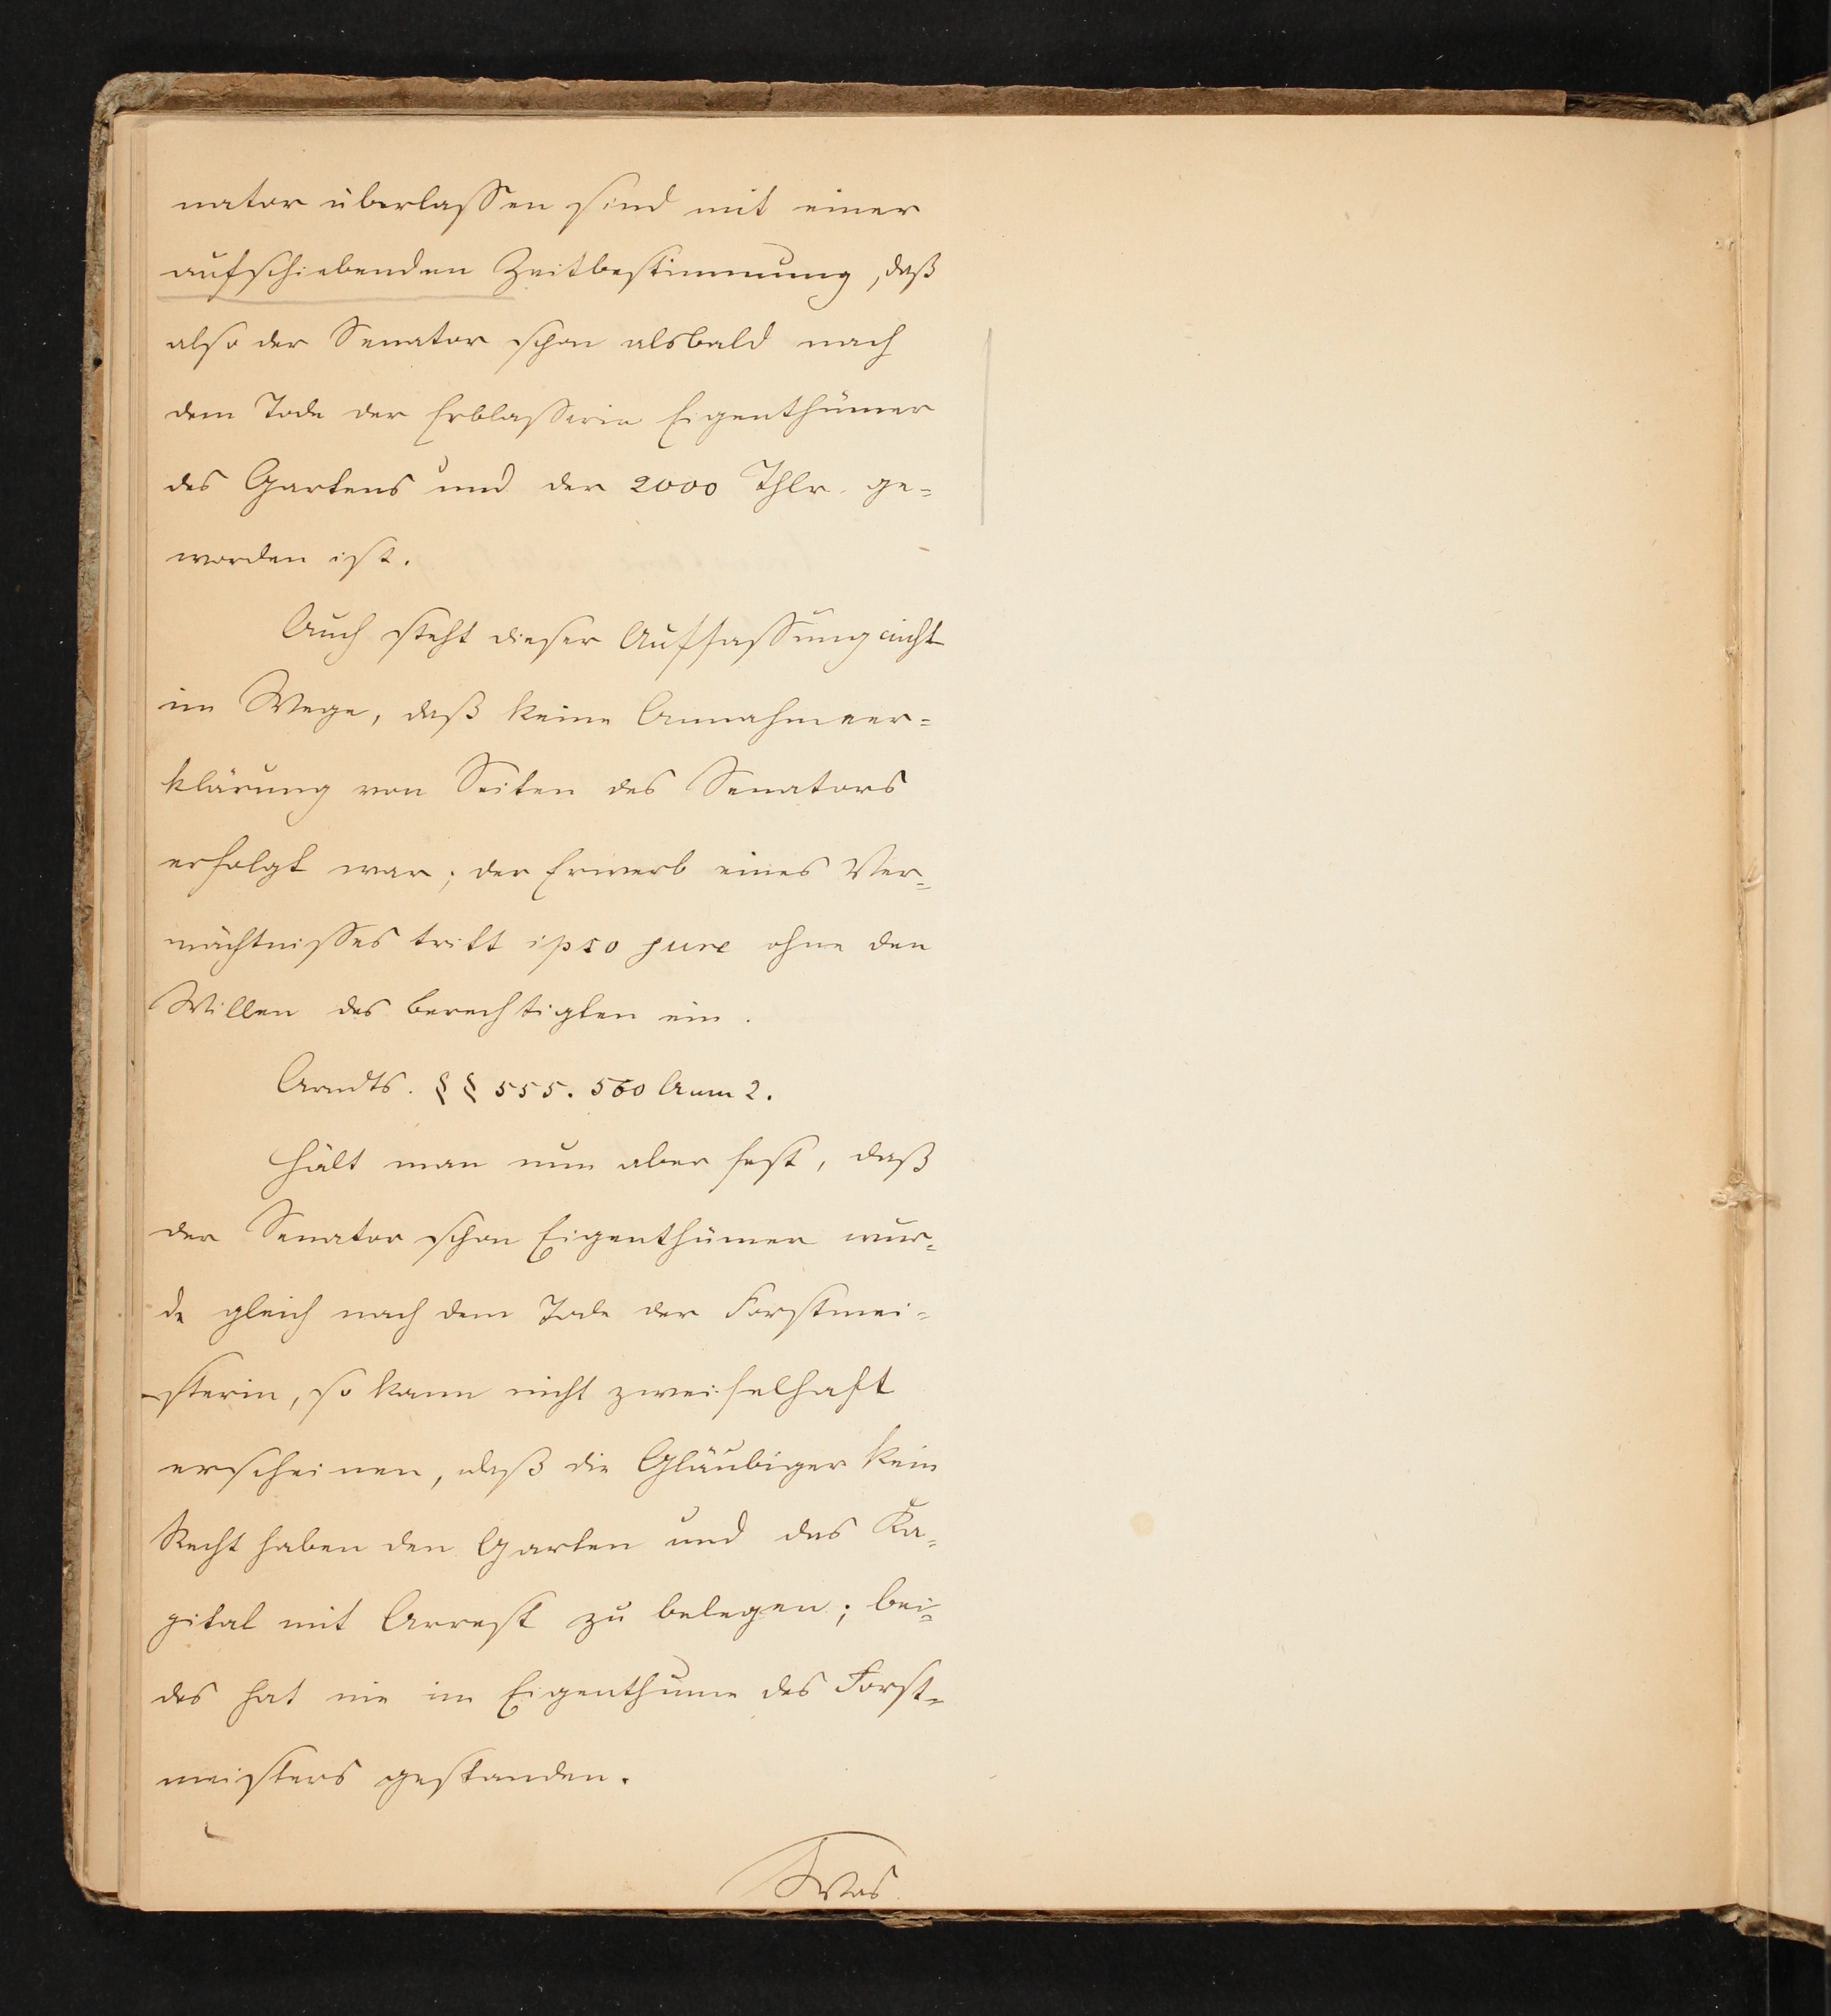 nator überlassen sind mit einer
aufschiebenden Zeitbestimmung, daß
also der Senator schon alsbald nach
dem Tode der Erblasserin Eigenthümer
des Gartens und der 2000 Thlr. ge=
worden ist.
Auch steht dieser Auffassung nicht
im Wege, daß keine Annahmeer=
klärung von Seiten des Senators
erfolgt war; der Erwerb eines Ver=
mächtnisses tritt ipso jure ohne den
Willen des Berechtigten ein.
Arndts. §§ 555. 560 Anm 2.
Hält man nun aber fest, daß
der Senator schon Eigenthümer wur=
de gleich nach dem Tode der Forstmei=
sterin, so kann nicht zweifelhaft
erscheinen, daß die Gläubiger kein
Recht haben den Garten und das Ka=
pital mit Arrest zu belegen; bei=
des hat nie im Eigenthume des Forst=
meisters gestanden.
Was